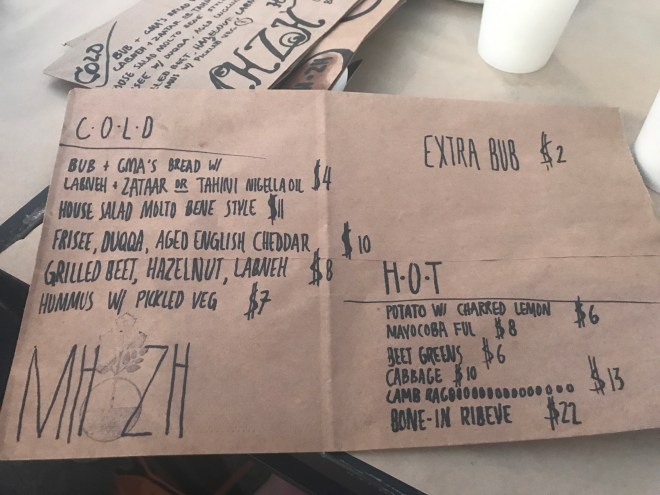 COLD
BUB + GMA'S BREAD W/
LABNEH + ZATAAR OR TAHINI NIGELLA OIL $4
HOUSE SALAD MOLTO BENE STYLE $11
FRISEE, DUQQA, AGED ENGLISH CHEDDAR $10
GRILLED BEET, HAZELNUT, LABNEH $8
HUMMUS W/ PICKLED VEG $7
MH ZH
EXTRA BUB $2
H·O·T
POTATO W/ CHARRED LEMON $6
MAYOCOBA FUL $8
BEET GREENS $6
CABBAGE $10
LAMB RAGOOOOOOOOOOOOO $13
BONE-IN RIBEYE $22
COLD
BUB + GMA'S BREAD
LABNEH + ZATAAR
MH ZH